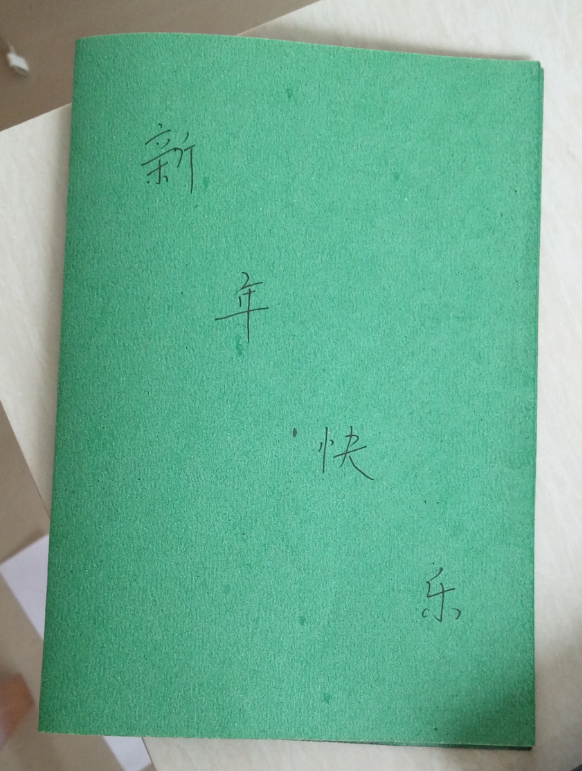 新
年
快
乐